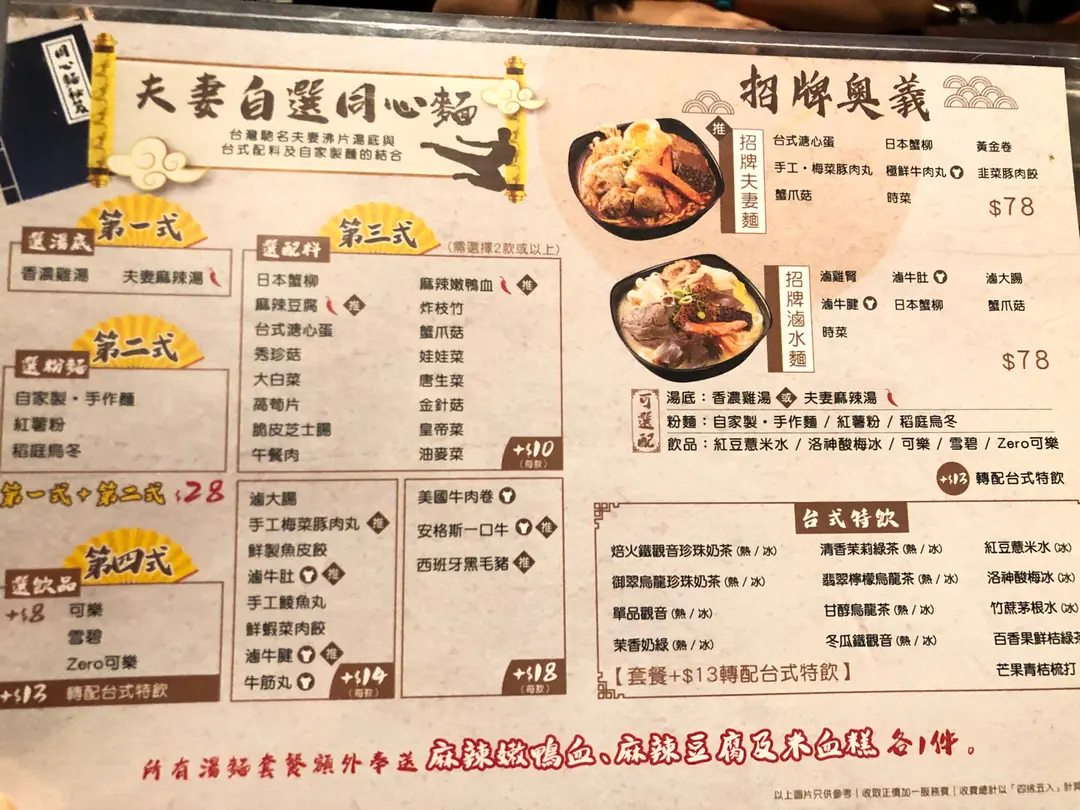 同心麵
夫妻自選同心麵
台灣馳名夫妻沸片湯底與
台式配料及自家製麵的結合
第一式
選湯底
香濃雞湯 夫妻麻辣湯
第二式
選粉麵
自家製・手作麵
紅薯粉
稻庭烏冬
第一式+第二式 $28
第四式
選飲品
+$8 可樂
雪碧
Zero可樂
+$13 轉配台式特飲
第三式
選配料
(需選擇2款或以上)
日本蟹柳
麻辣豆腐 推
台式溏心蛋
秀珍菇
大白菜
萵筍片
脆皮芝士腸
午餐肉
麻辣嫩鴨血 推
炸枝竹
蟹爪菇
娃娃菜
唐生菜
金針菇
皇帝菜
油麥菜
+$10
(每款)
滷大腸
手工梅菜豚肉丸 推
鮮製魚皮餃
滷牛肚 推
手工鯪魚丸
鮮蝦菜肉餃
滷牛腱 推
牛筋丸
+$14
(每款)
美國牛肉卷
安格斯一口牛 推
西班牙黑毛豬 推
+$18
(每款)
招牌奧義
推
招牌夫妻麵
台式溏心蛋 日本蟹柳 黃金卷
手工・梅菜豚肉丸 極鮮牛肉丸 韭菜豚肉餃
蟹爪菇 時菜
$78
招牌滷水麵
滷雞腎 滷牛肚 滷大腸
滷牛腱 日本蟹柳 蟹爪菇
時菜
$78
可選配
湯底：香濃雞湯 或 夫妻麻辣湯
粉麵：自家製・手作麵 / 紅薯粉 / 稻庭烏冬
飲品：紅豆薏米水 / 洛神酸梅冰 / 可樂 / 雪碧 / Zero可樂
+$13 轉配台式特飲
台式特飲
焙火鐵觀音珍珠奶茶 (熱 / 冰) 清香茉莉綠茶 (熱 / 冰) 紅豆薏米水 (冰
御翠烏龍珍珠奶茶 (熱 / 冰) 翡翠檸檬烏龍茶 (熱 / 冰) 洛神酸梅冰 (冰
單品觀音 (熱 / 冰) 甘醇烏龍茶 (熱 / 冰) 竹蔗茅根水 (冰
茉香奶綠 (熱 / 冰) 冬瓜鐵觀音 (熱 / 冰) 百香果鮮桔綠茶
芒果青桔梳打
【套餐+$13轉配台式特飲】
所有湯麵套餐額外奉送 麻辣嫩鴨血、麻辣豆腐及米血糕各1件。
以上圖片只供參考 | 收取正價加一服務費 | 收費總計以「四捨五入」計算